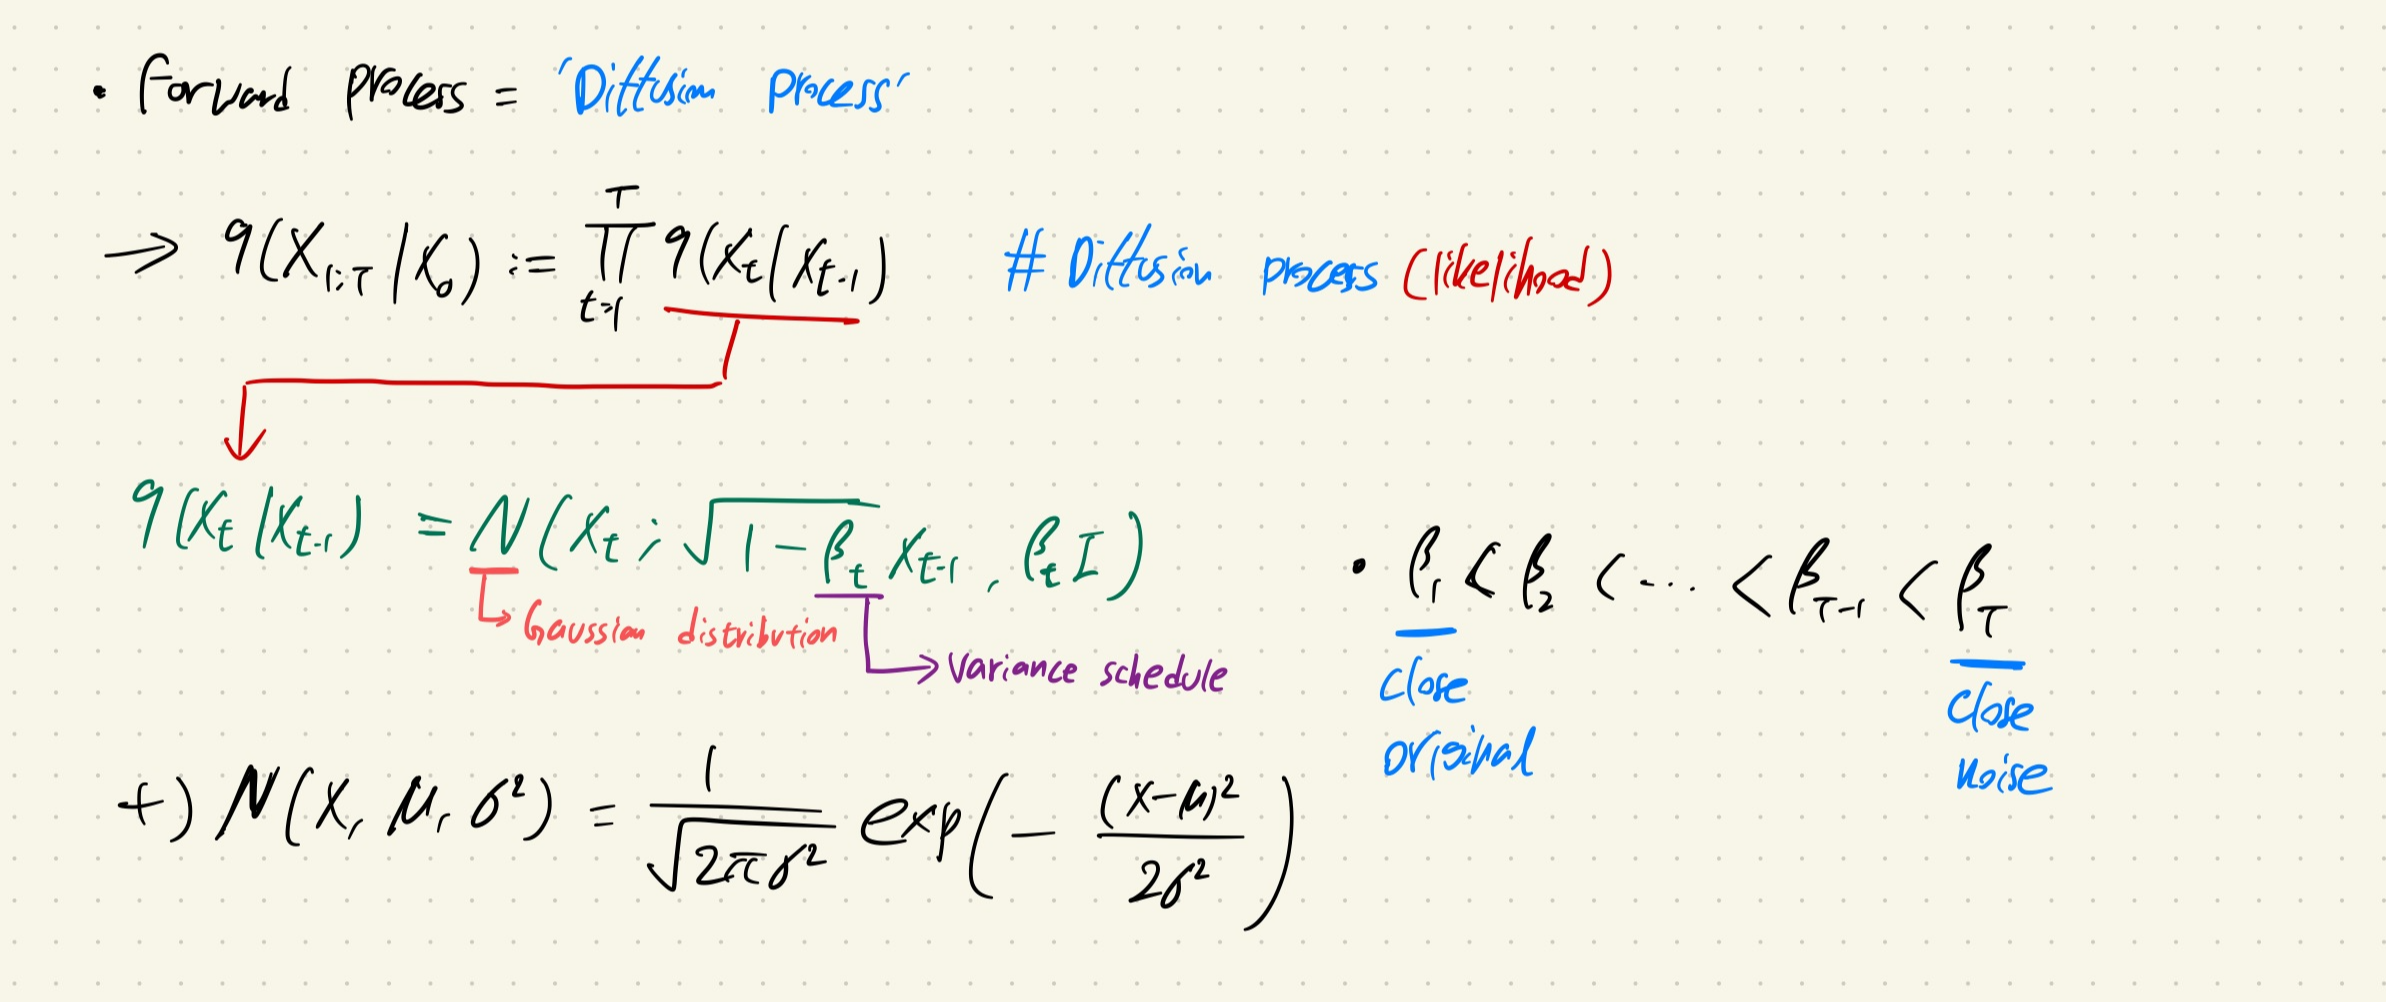 • Forward process = 'Diffusion process'
→ q(X₁:T | X₀) := ∏ₜ₌₁ᵀ q(Xₜ | Xₜ₋₁) # Diffusion process (likelihood)
q(Xₜ | Xₜ₋₁) = N(Xₜ ; √(1-βₜ) Xₜ₋₁, βₜ I)
• β₁ < β₂ < ... < β_T₋₁ < β_T
Gaussian distribution
variance schedule
close original
close noise
+) N(X, μ, σ²) = 1/√(2πσ²) exp(- (x-μ)²/2σ²)